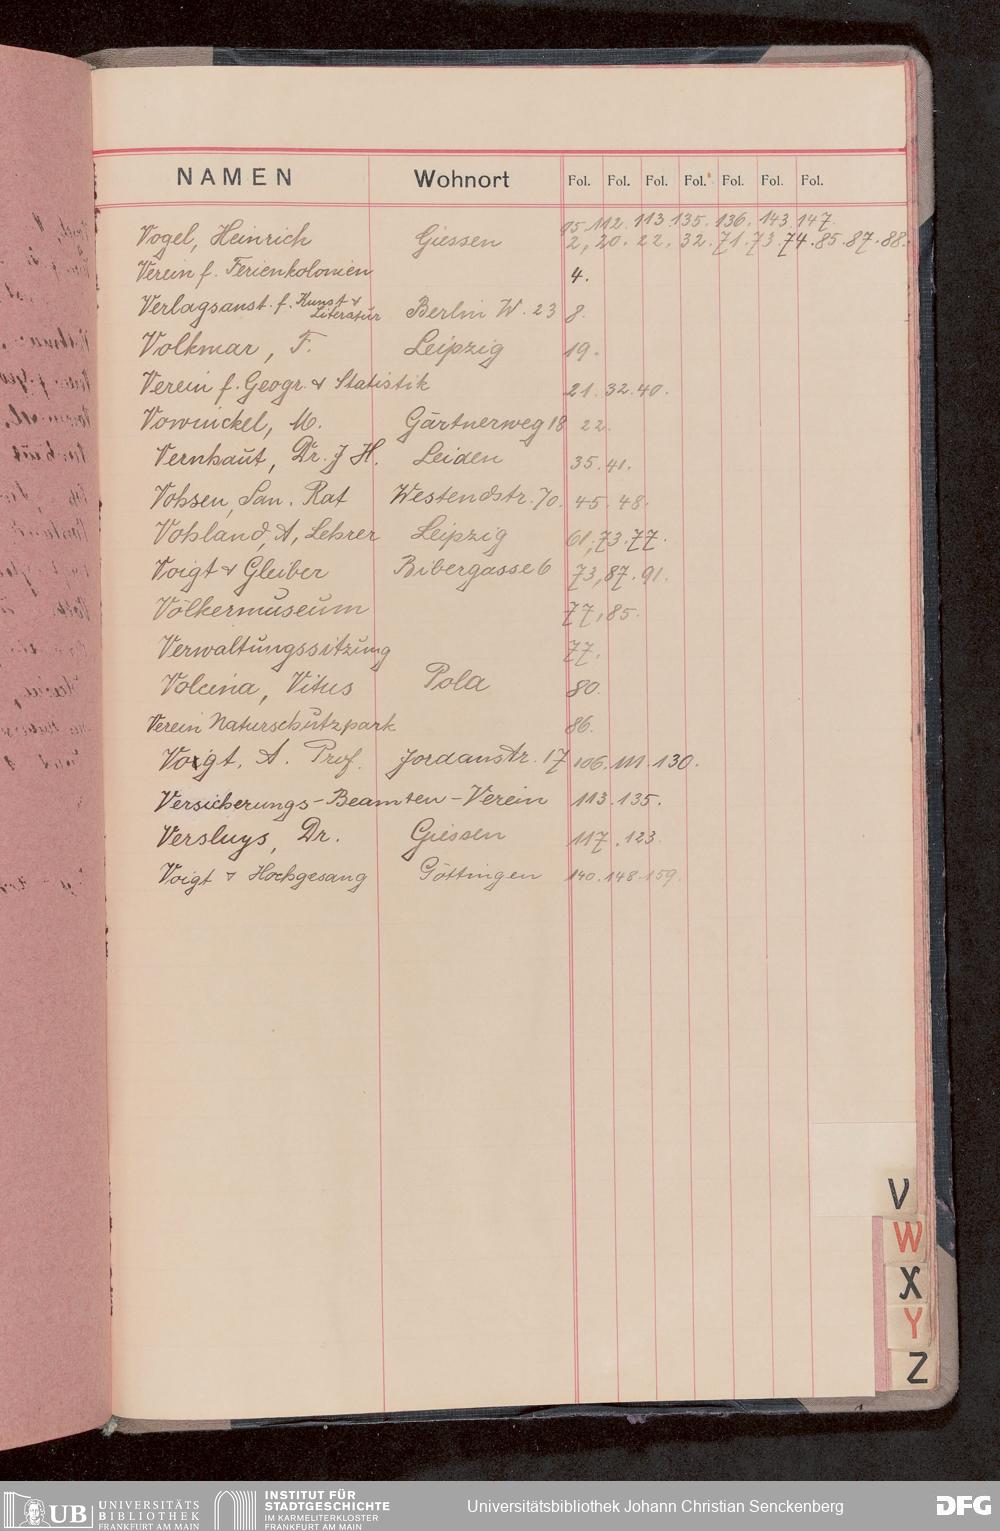 NAMEN Wohnort Fol. Fol. Fol. Fol. Fol. Fol. Fol.
95. 112. 113. 135. 136. 143. 147.
Vogel, Heinrich Giessen 2, 20. 22. 32. 71. 73. 74. 85. 87. 88.
Verein f. Ferienkolonien 4.
Verlagsanst. f. Kunst & Literatur Berlin W. 23 8.
Volkmar, F. Leipzig 19.
Verein f. Geogr. & Statistik 21. 32. 40.
Vowinckel, M. Gärtnerweg 18 22.
Vernhout, Dr. J H. Leiden 35. 41.
Vohsen, San. Rat Westendstr. 70. 45. 48.
Vohland, A, Lehrer Leipzig 61, 73. 77.
Voigt & Gleiber Bibergasse 6 73, 87. 91.
Völkermuseum 77, 85.
Verwaltungssitzung 77.
Volcina, Vitus Pola 80.
Verein Naturschutzpark 86.
Voigt, A. Prof. Jordanstr. 17 106. 111. 130.
Versicherungs-Beamten-Verein 113. 135.
Versluys, Dr. Giessen 117. 123.
Voigt & Hochgesang Göttingen 140. 148. 159.
V
W
X
Y
Z
UB UNIVERSITÄTS
BIBLIOTHEK
FRANKFURT AM MAIN
INSTITUT FÜR
STADTGESCHICHTE
IM KARMELITERKLOSTER
FRANKFURT AM MAIN
Universitätsbibliothek Johann Christian Senckenberg
DFG